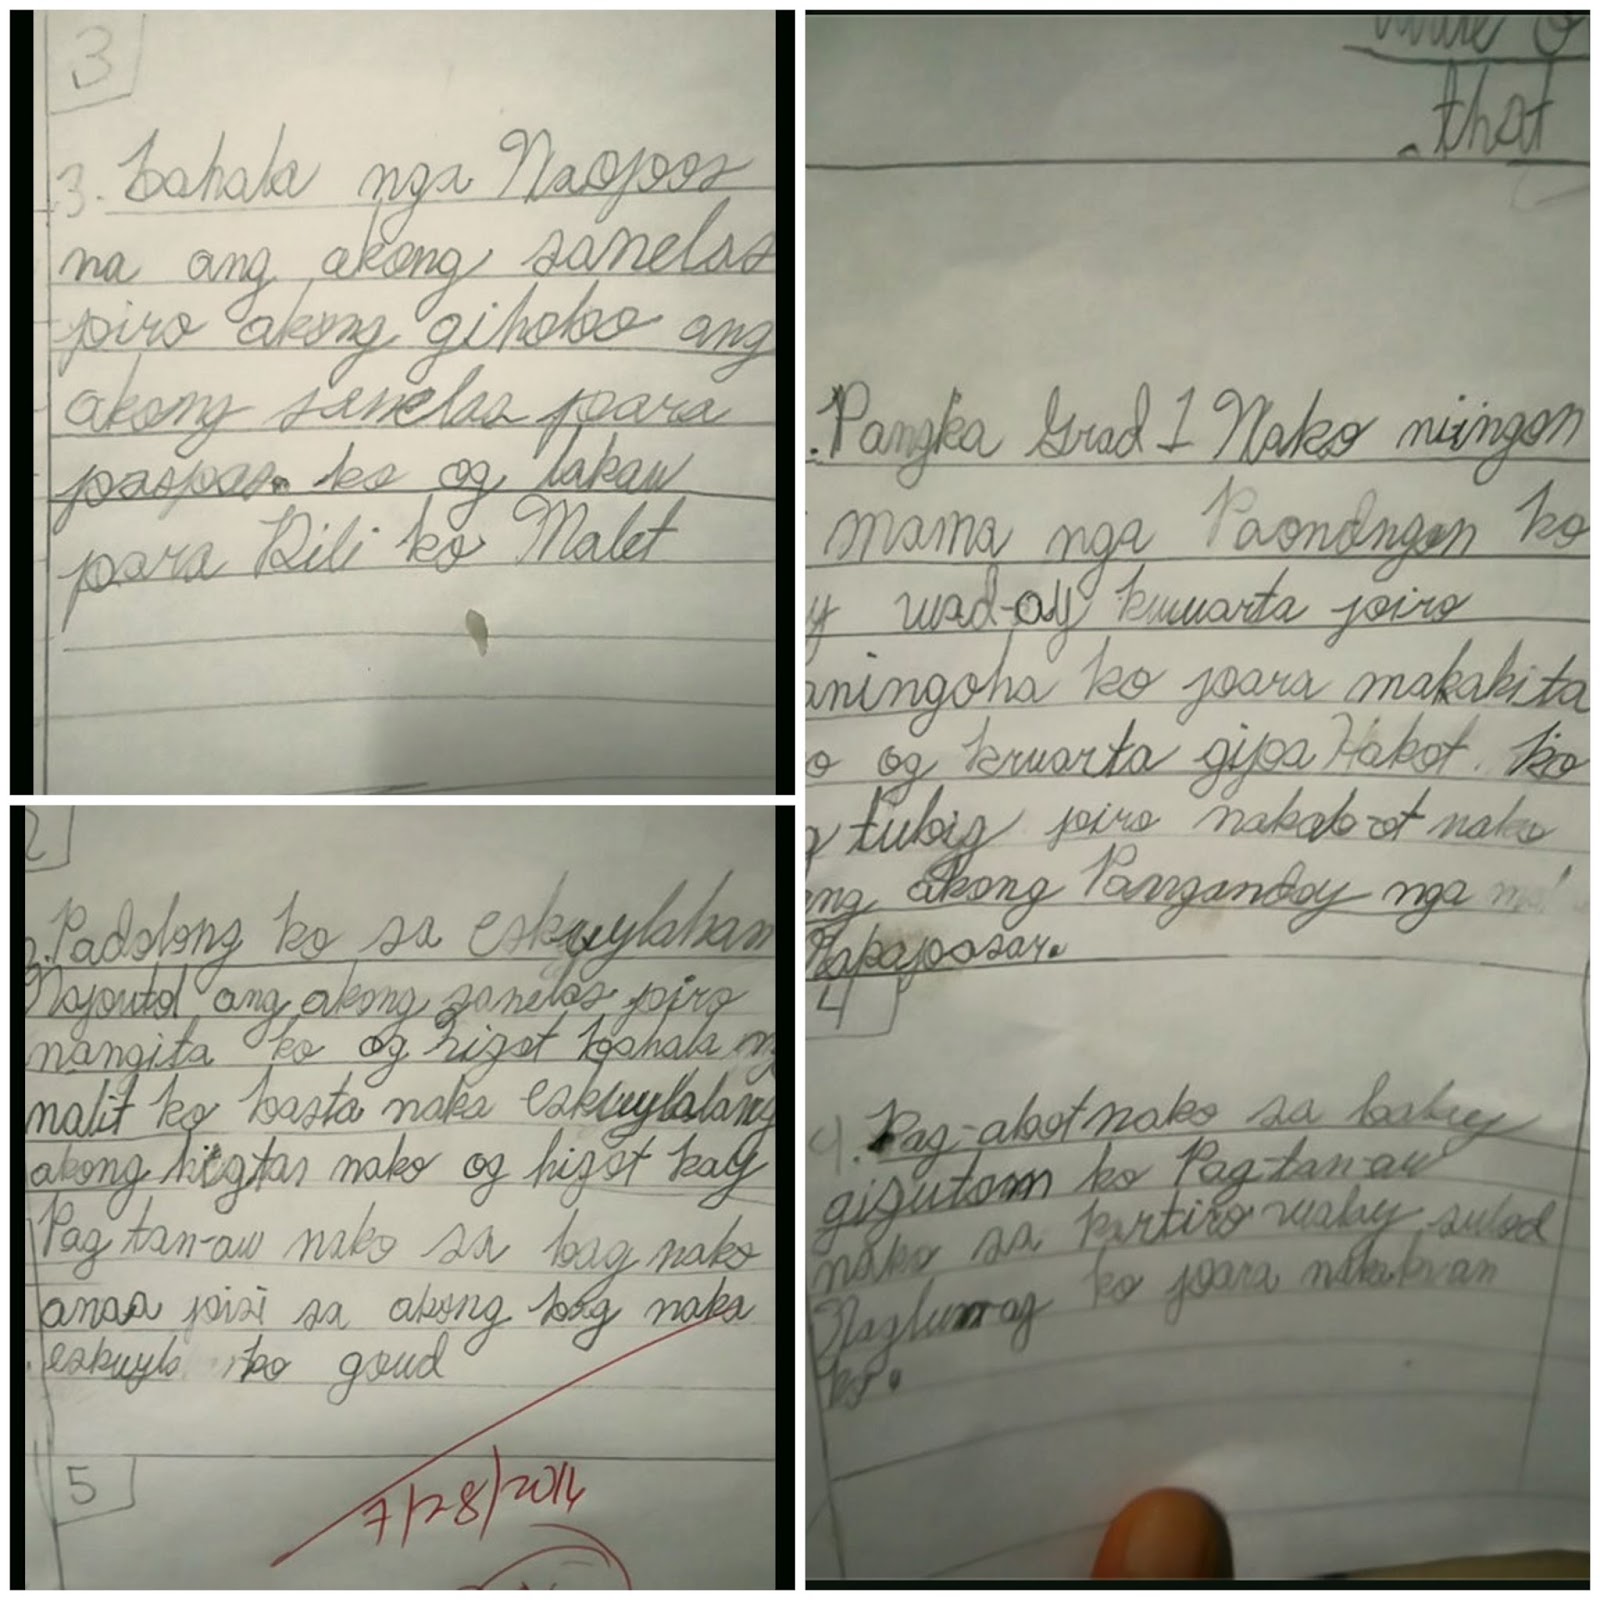 3
3. bahala nga Naopos
na ang akong sanelas
piro akong gihobo ang
akong sanelas para
paspas ko og lakaw
para Dili ko Malet
2
2. Padolong ko sa eskuylahan
Napoutol ang akong sanelas piro
nangita ko og higot bahala ng
malit ko basta naka eskuylalang
akong higtan nako og higot kay
Pag tan-aw nako sa bag nako
anaa pisi sa akong bag naka
eskuyla ko goud
5
7/28/2014
that
. Pangka Grad 1 Nako niingon
mama nga Paondngon ko
y wad-ay kuwarta piro
aningoha ko para makakita
o og kwarta gipa Hakot ko
g tubig piro nakab-ot nako
ang akong Pangandoy nga
Makapapasar.
4
4. Pag-abot nako sa balay
gigutom ko Pag-tan-aw
nako sa kartiro walay sulod
Naglung-ag ko para nakakaan
ko.